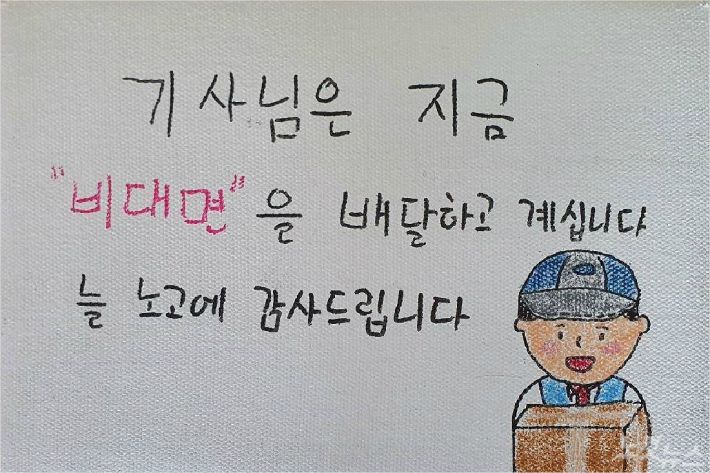 기사님은 지금
"비대면"을 배달하고 계십니다
늘 노고에 감사드립니다